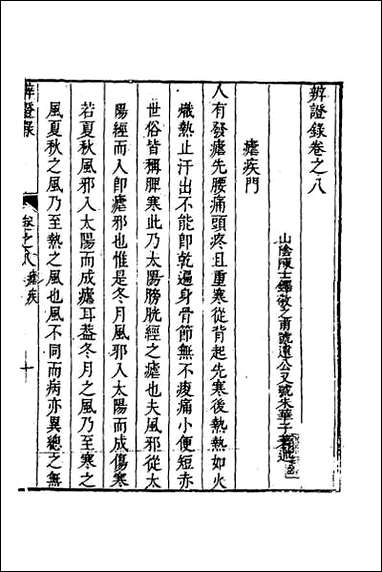 辨證錄卷之八
山陰陳士鐸敬之甫號遠公又號朱華子著述
瘧疾門
人有發瘧先腰痛頭疼且重寒從背起先寒後熱熱如火
熾熱止汗出不能卽乾遍身骨節無不痠痛小便短赤
世俗皆稱脾寒此乃太陽膀胱經之瘧也夫風邪從太
陽經而入卽瘧邪也惟是冬月風邪入太陽而成傷寒
若夏秋風邪入太陽而成瘧耳葢冬月之風乃至寒之
風夏秋之風乃至熱之風也風不同而病亦異總之無
辨證錄
卷之八 瘧疾
十